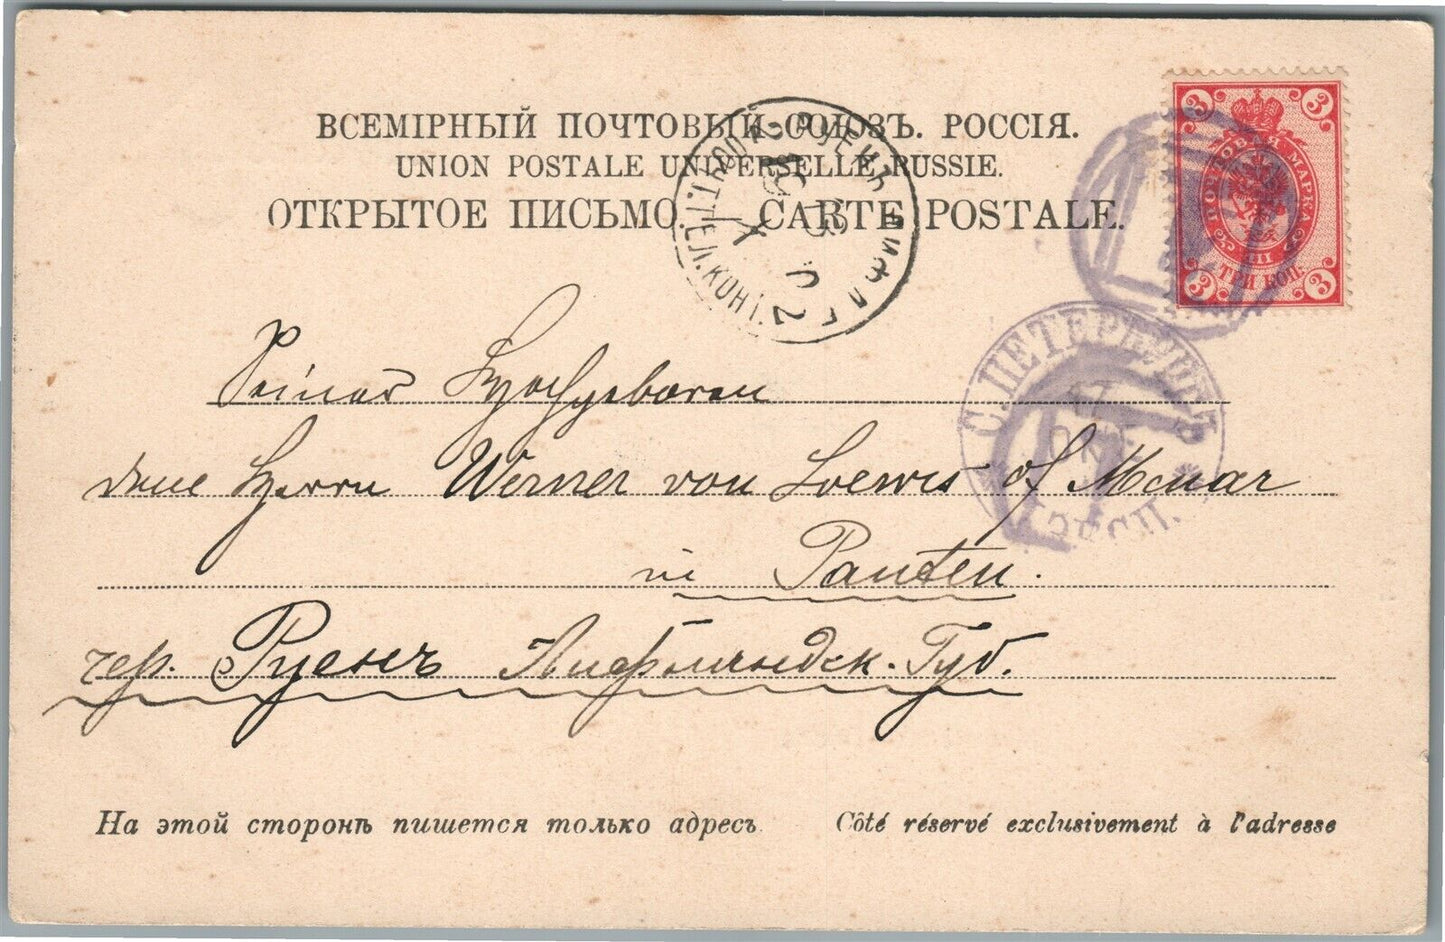 ВСЕМІРНЫЙ ПОЧТОВЫЙ СОЮЗЪ. РОССІЯ.
UNION POSTALE UNIVERSELLE RUSSIE.
ОТКРЫТОЕ ПИСЬМО. CARTE POSTALE.
ПОЧТОВАЯ МАРКА
3 3
III
ТРИ КОП.
3 3
РУЕНЪ ЛИФЛ. Г.
С.ПЕТЕРБУРГЪ
Seiner Hochgeboren
dem Herrn Werner von Loewis of Menar
in Panten.
чер. Руенъ Лифляндск. Губ.
На этой сторонѣ пишется только адресъ Côté réservé exclusivement à l'adresse